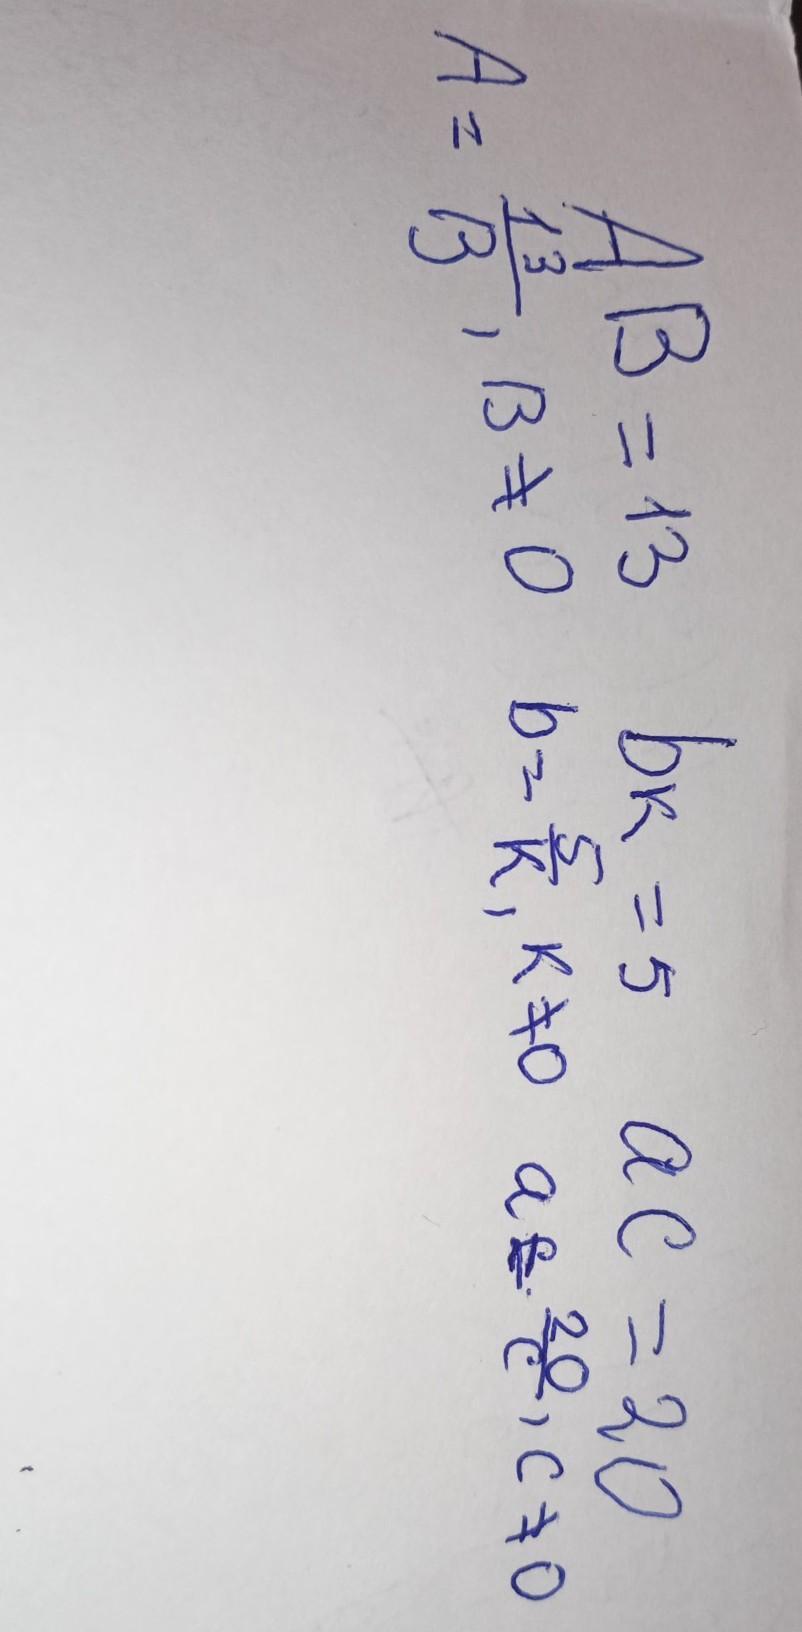 AB = 13 bK = 5 ac = 20
A = 13/B, B ≠ 0 b = 5/K, K ≠ 0 a = 20/c, c ≠ 0